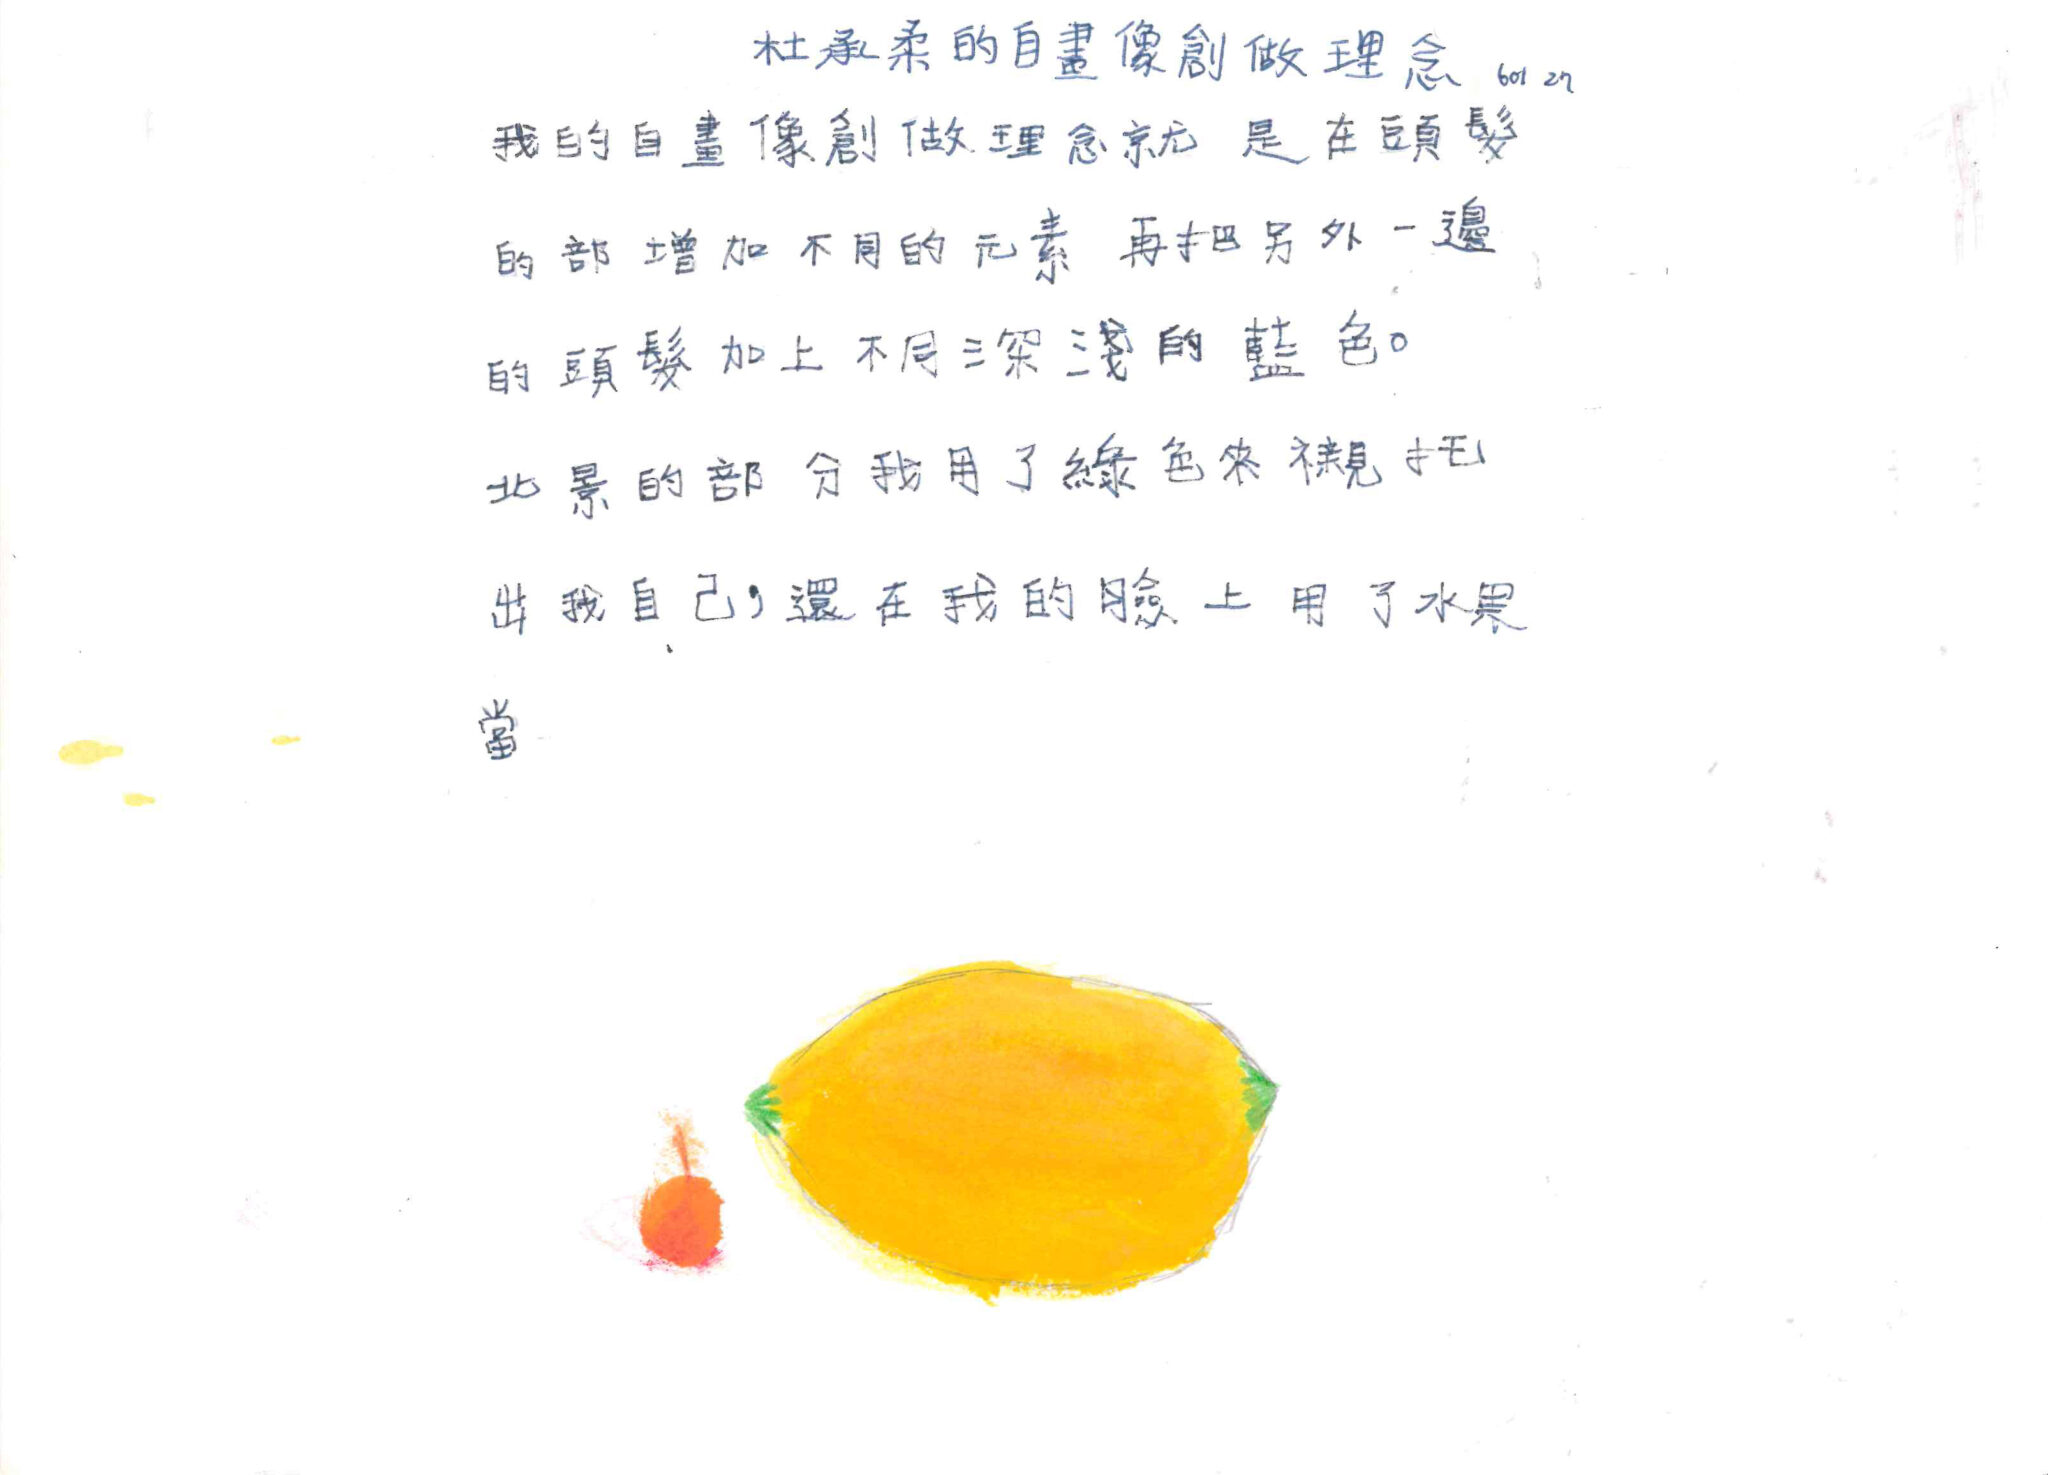 杜承柔的自畫像創做理念 601 27
我的自畫像創做理念就是在頭髮
的部增加不同的元素再把另外一邊
的頭髮加上不同深淺的藍色。
北景的部分我用了綠色來襯托
出我自己,還在我的臉上用了水果
當